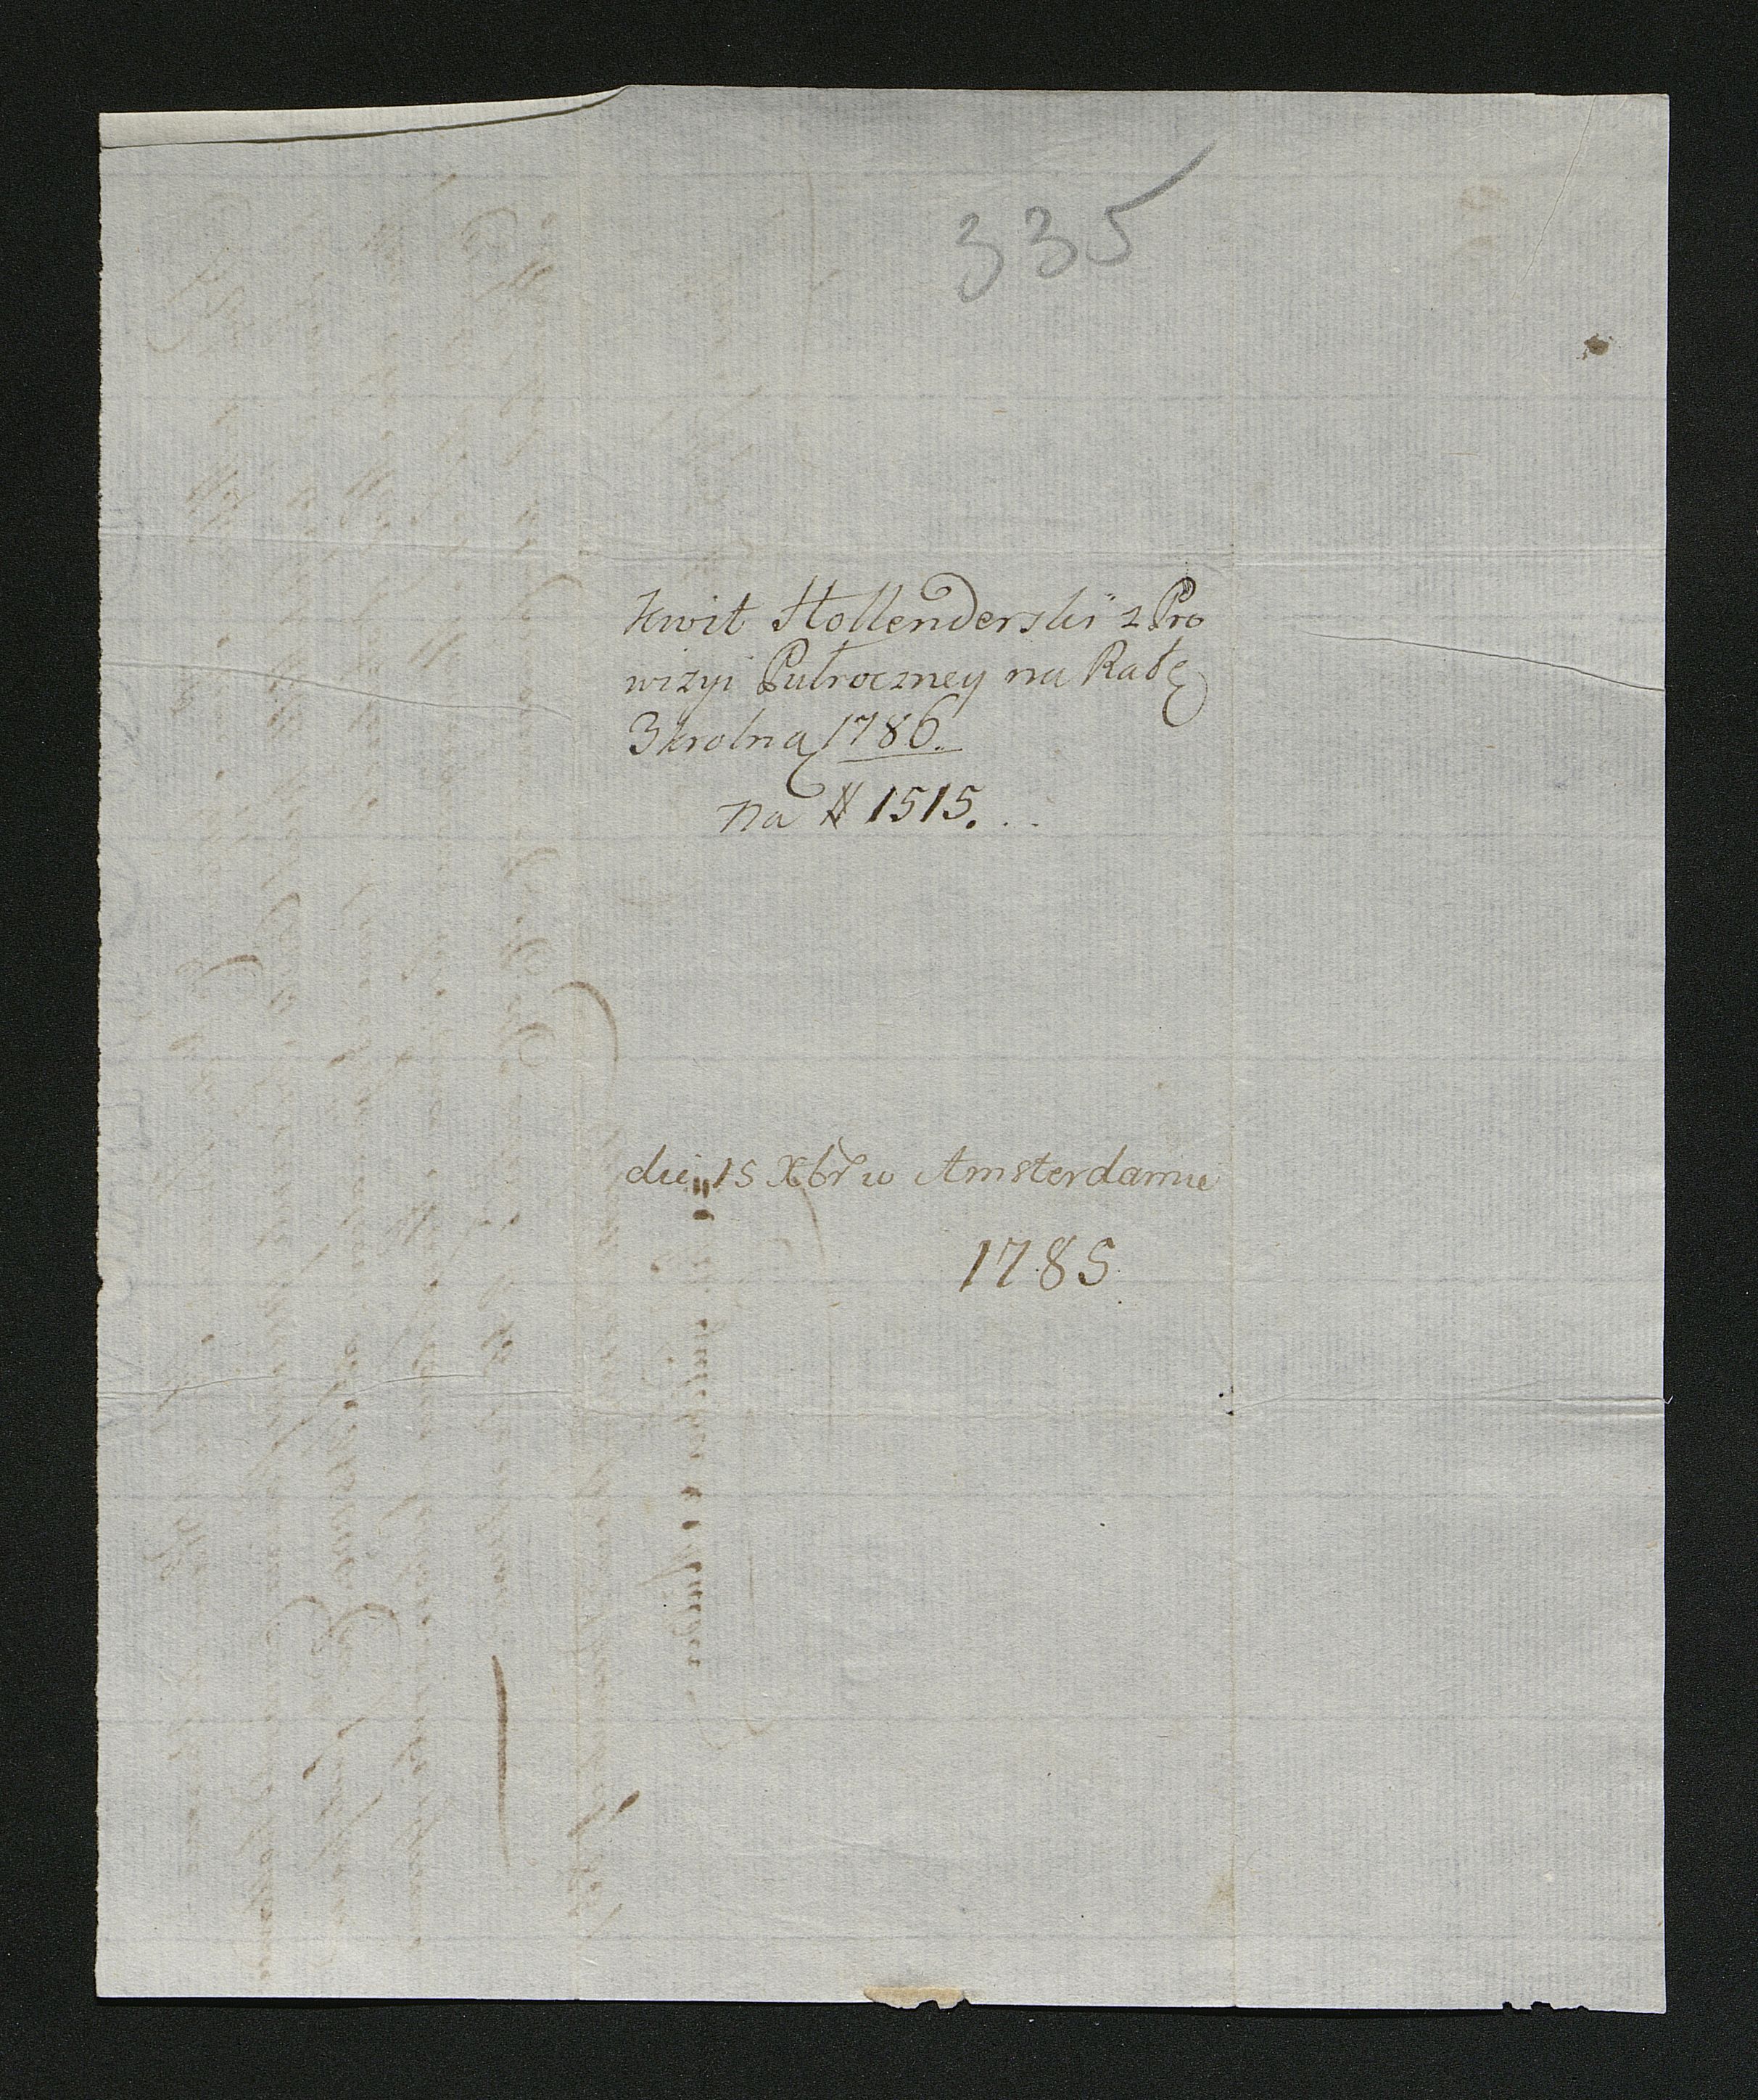 335
Kwit Hollenderski z Pro
wizyi Pułroczney na Ratę
3krolną 1786.
na # 1515. . .
die 15 Xbr w Amsterdamie
1785